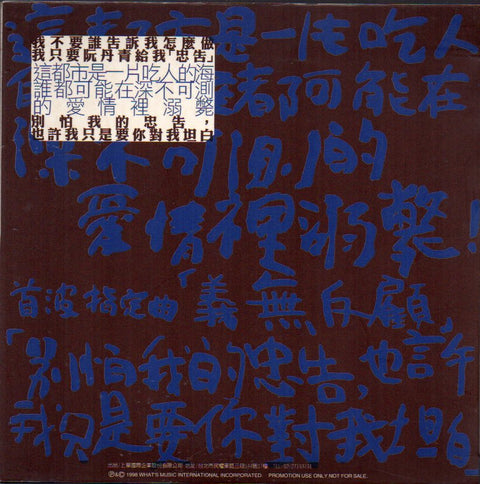 這都市是一片吃人
我不要誰告訴我怎麼做
我只要阮丹青給我「忠告」
這都市是一片吃人的海
誰都可能在深不可測
的愛情裡溺斃
別怕我的忠告，
也許我只是要你對我坦白
都可能在
深不可測的
愛情裡溺斃！
首波指定曲「義無反顧」
「別怕我的忠告，也許
我只是要你對我坦白
出品/上華國際企業股份有限公司 地址/台北市民權東路三段
℗&© 1998 WHAT'S MUSIC INTERNATIONAL INCORPORATED. PROMOTION USE ONLY NOT FOR SALE.